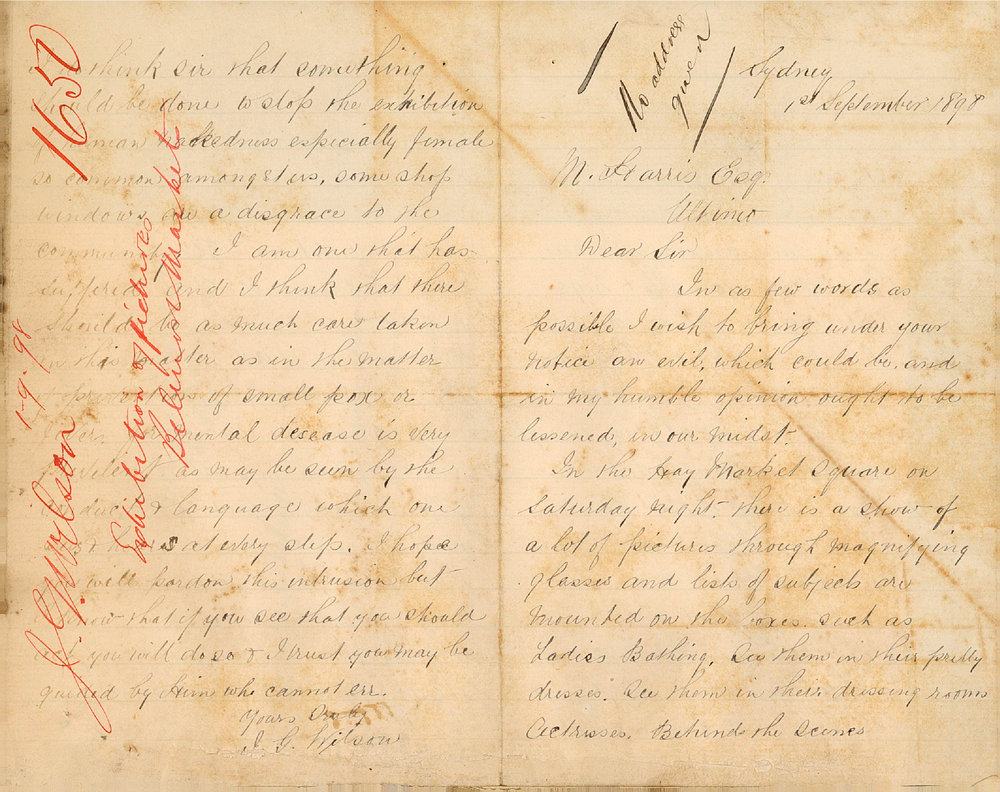 No address
given
Sydney
1st September 1898
M. Harris Esq.
Ultimo
Dear Sir
In as few words as
possible I wish to bring under your
notice an evil, which could be, and
in my humble opinion ought to be
lessened, in our midst.
In the Hay Market Square on
Saturday night. there is a show of
a lot of pictures through magnifying
glasses and lists of subjects are
mounted on the boxes. such as
Ladies Bathing. See them in their pretty
dresses. See them in their dressing rooms
Actresses. Behind the Scenes
I do think sir that something
should be done to stop the exhibition
of human nackedness especially female
so common amongst us, some shop
windows are a disgrace to the
community. I am one that has
suffered and I think that there
should be as much care taken
in this matter as in the matter
of small pox or
mental desease is very
as may be seen by the
& language which one
at every step. I hope
you will pardon this intrusion but
I know that if you see that you should
act you will do so & I trust you may be
guided by Him who cannot err.
Yours Truly
J. G. Wilson
1650
Exhibition of pictures
Belmore Market
J. G. Wilson 1-9-98